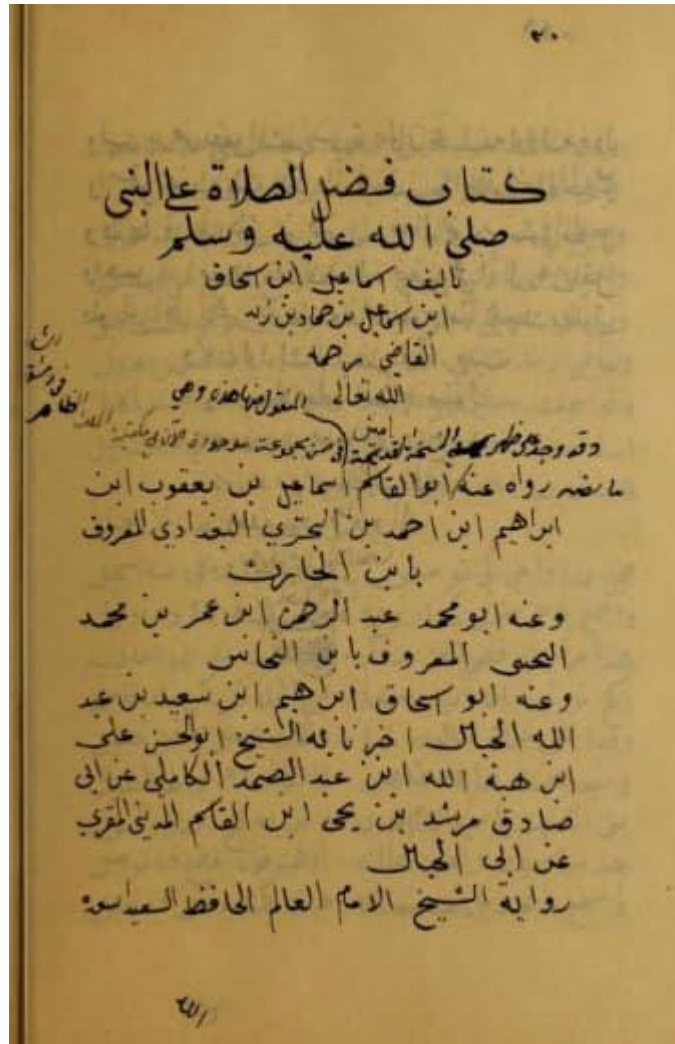 ٣٠
كتاب فضل الصلاة على النبي
صلى الله عليه وسلم
تاليف اسماعيل ابن اسحاق
ابن اسماعيل بن حماد بن زيد
القاضي رحمه
الله تعالى
امين
المنقول منها هذه وهي
وقد وجد على ظهر النسخة القديمة (في ضمن مجموعة موجودة الآن في مكتبة الملك الظاهر في دمشق
ما نصه رواه عنه ابو القاسم اسماعيل بن يعقوب ابن
ابراهيم ابن احمد بن البحتري البغدادي المعروف
بابن الجارث
وعنه ابو محمد عبد الرحمن ابن عمر بن محمد
المعروف بابن النحاس
وعنه ابو سحاق ابراهيم ابن سعيد بن عبد
الله الحبال اخبرنا به الشيخ ابو الحسن على
ابن هبة الله ابن عبد الصمد الكاملي عن ابى
صادق مرشد بن يحيى ابن القاسم المديني المقري
عن ابى الحبال
رواية الشيخ الامام العالم الحافظ السعيد اسوة
الله